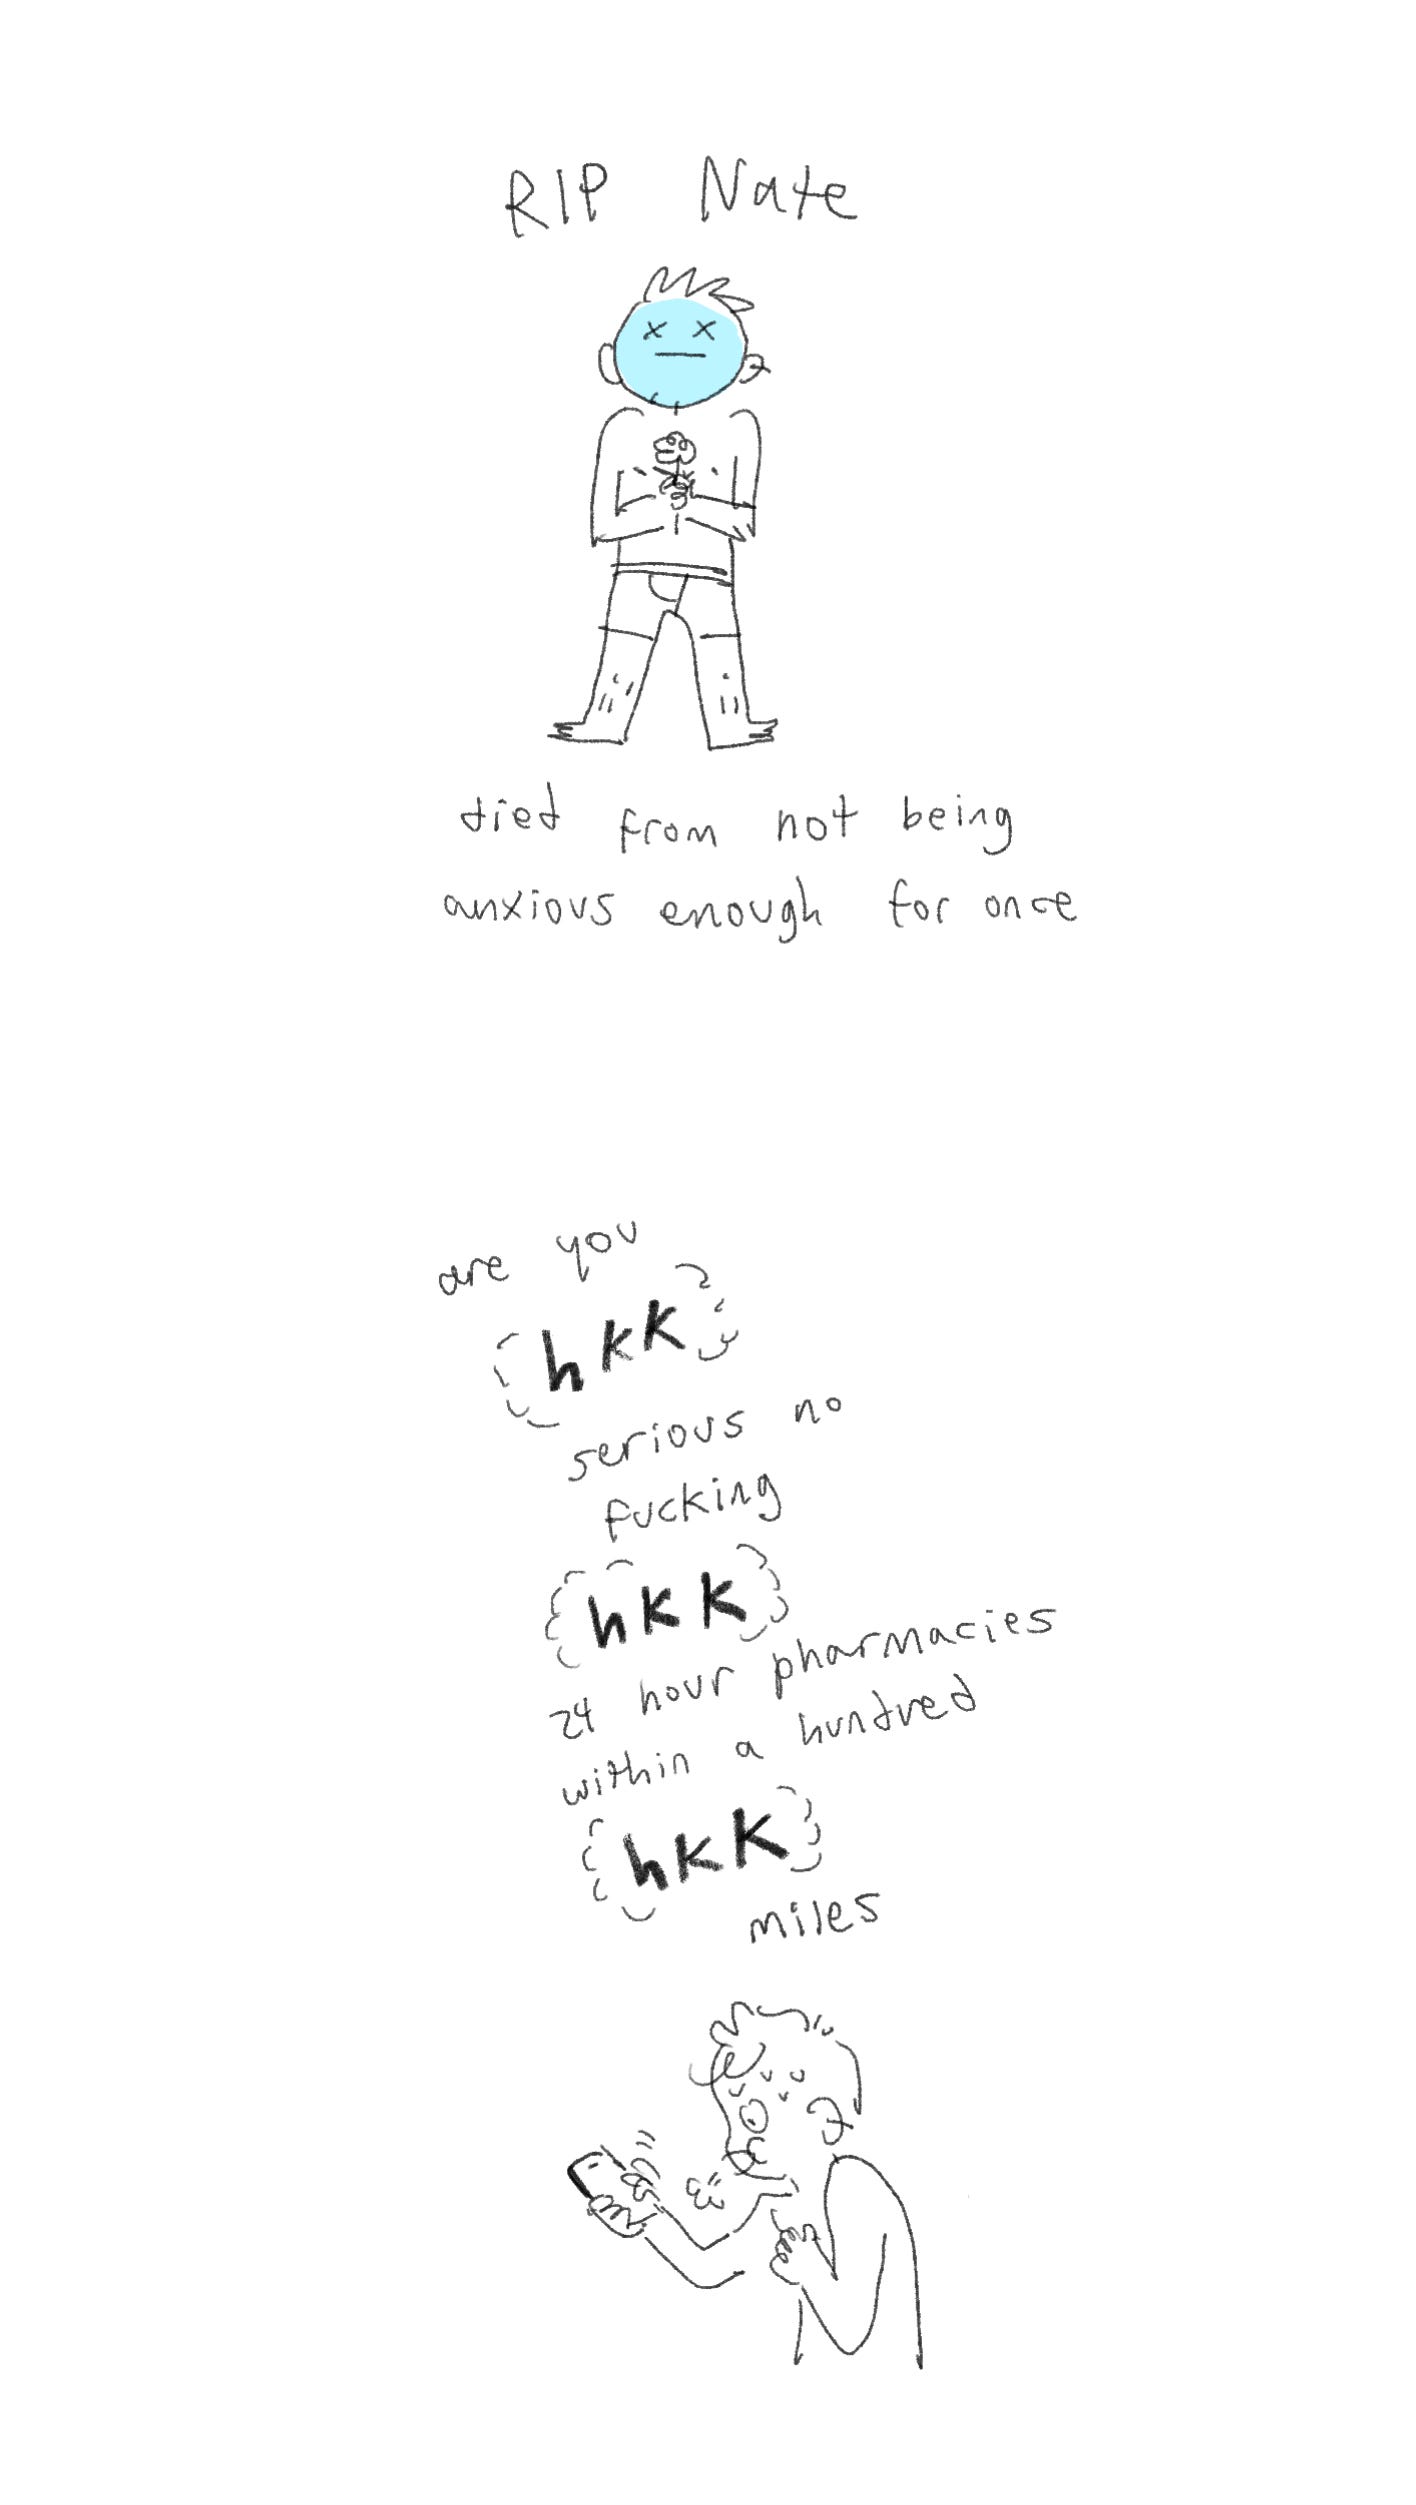 RIP Nate
died from not being
anxious enough for once
are you
hkk
serious no
fucking
hkk
24 hour pharmacies
within a hundred
hkk
miles